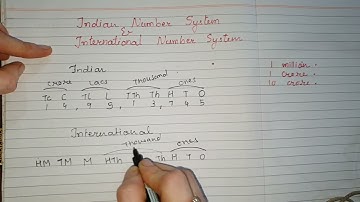 Indian Number System
&
International Number System
Indian
1 million.
1 crore.
10 crore.
crore Lacs Thousand ones
Tc C TL L TTh Th H T O
1 4, 9 5, 1 3, 7 4 5
International
Thousand ones
HM TM M HTh Th H T O